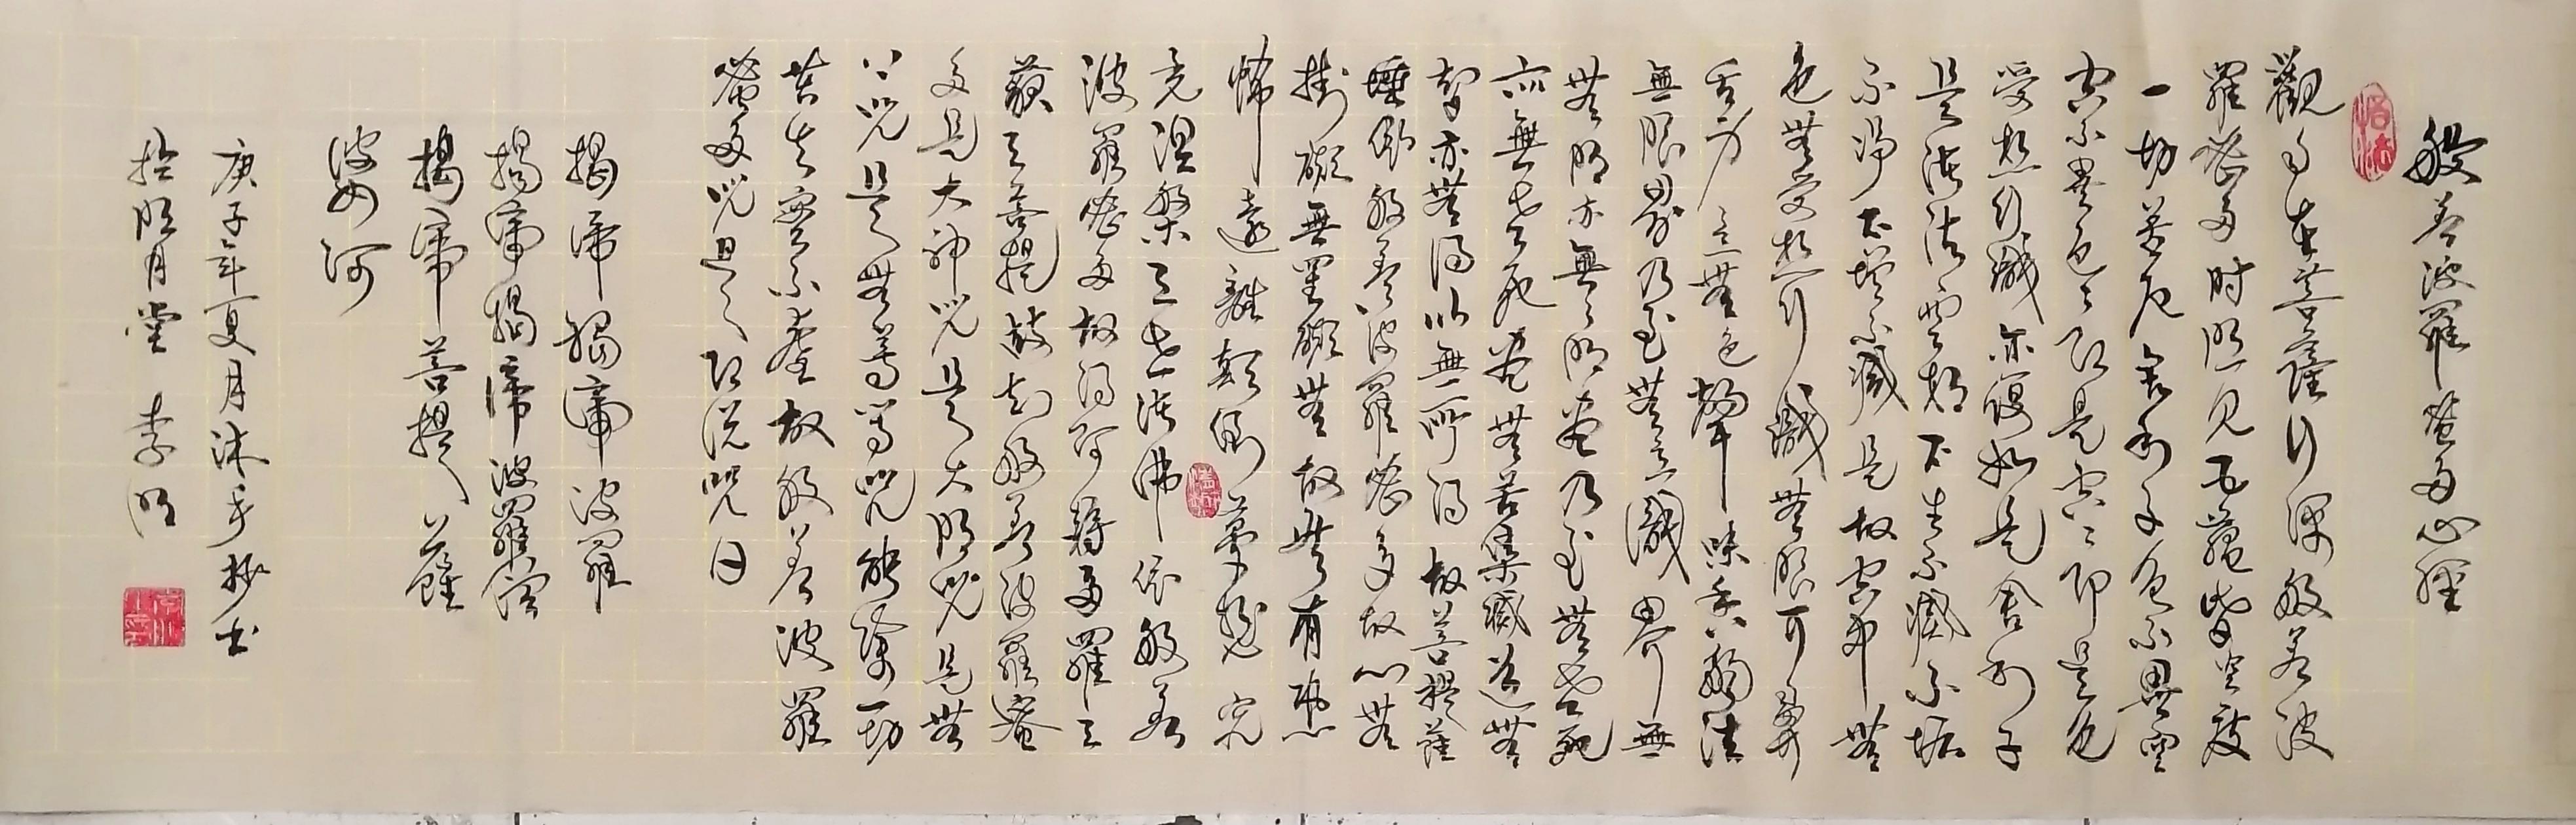 般若波羅蜜多心經
觀自在菩薩行深般若波
羅蜜多時照見五蘊皆空度
一切苦厄舍利子色不異空
空不異色色即是空空即是色
受想行識亦復如是舍利子
是諸法空相不生不滅不垢
不淨不增不減是故空中無
色無受想行識無眼耳鼻
舌身意無色聲味香觸法
無眼界乃至無意識界無
無明亦無無明盡乃至無老死
亦無老死盡無苦集滅道無
智亦無得以無所得故菩提薩
埵依般若波羅蜜多故心無
掛礙無罣礙無故無有恐
怖遠離顛倒夢想究
竟涅槃三世諸佛依般若
波羅蜜多故得阿耨多羅三
藐三菩提故知般若波羅蜜
多是大神咒是大明咒是無
上咒是無等等咒能除一切
苦真實不虛故般若波羅
蜜多咒即說咒曰
揭帝揭帝波羅
揭帝揭帝波羅僧
揭帝菩提薩
婆訶
庚子年夏月沐手抄書
於明月堂 李明